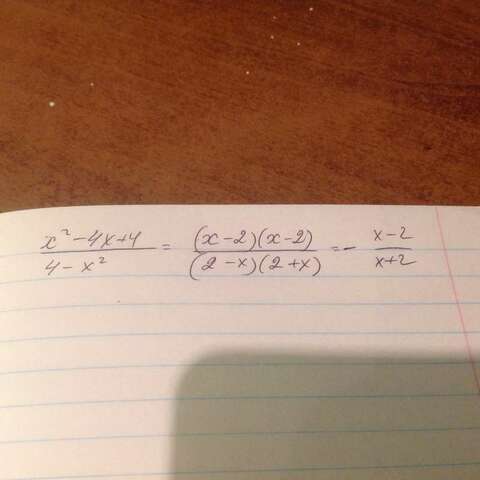 (x² - 4x + 4)/(4 - x²) = ((x - 2)(x - 2))/((2 - x)(2 + x)) = - (x - 2)/(x + 2)